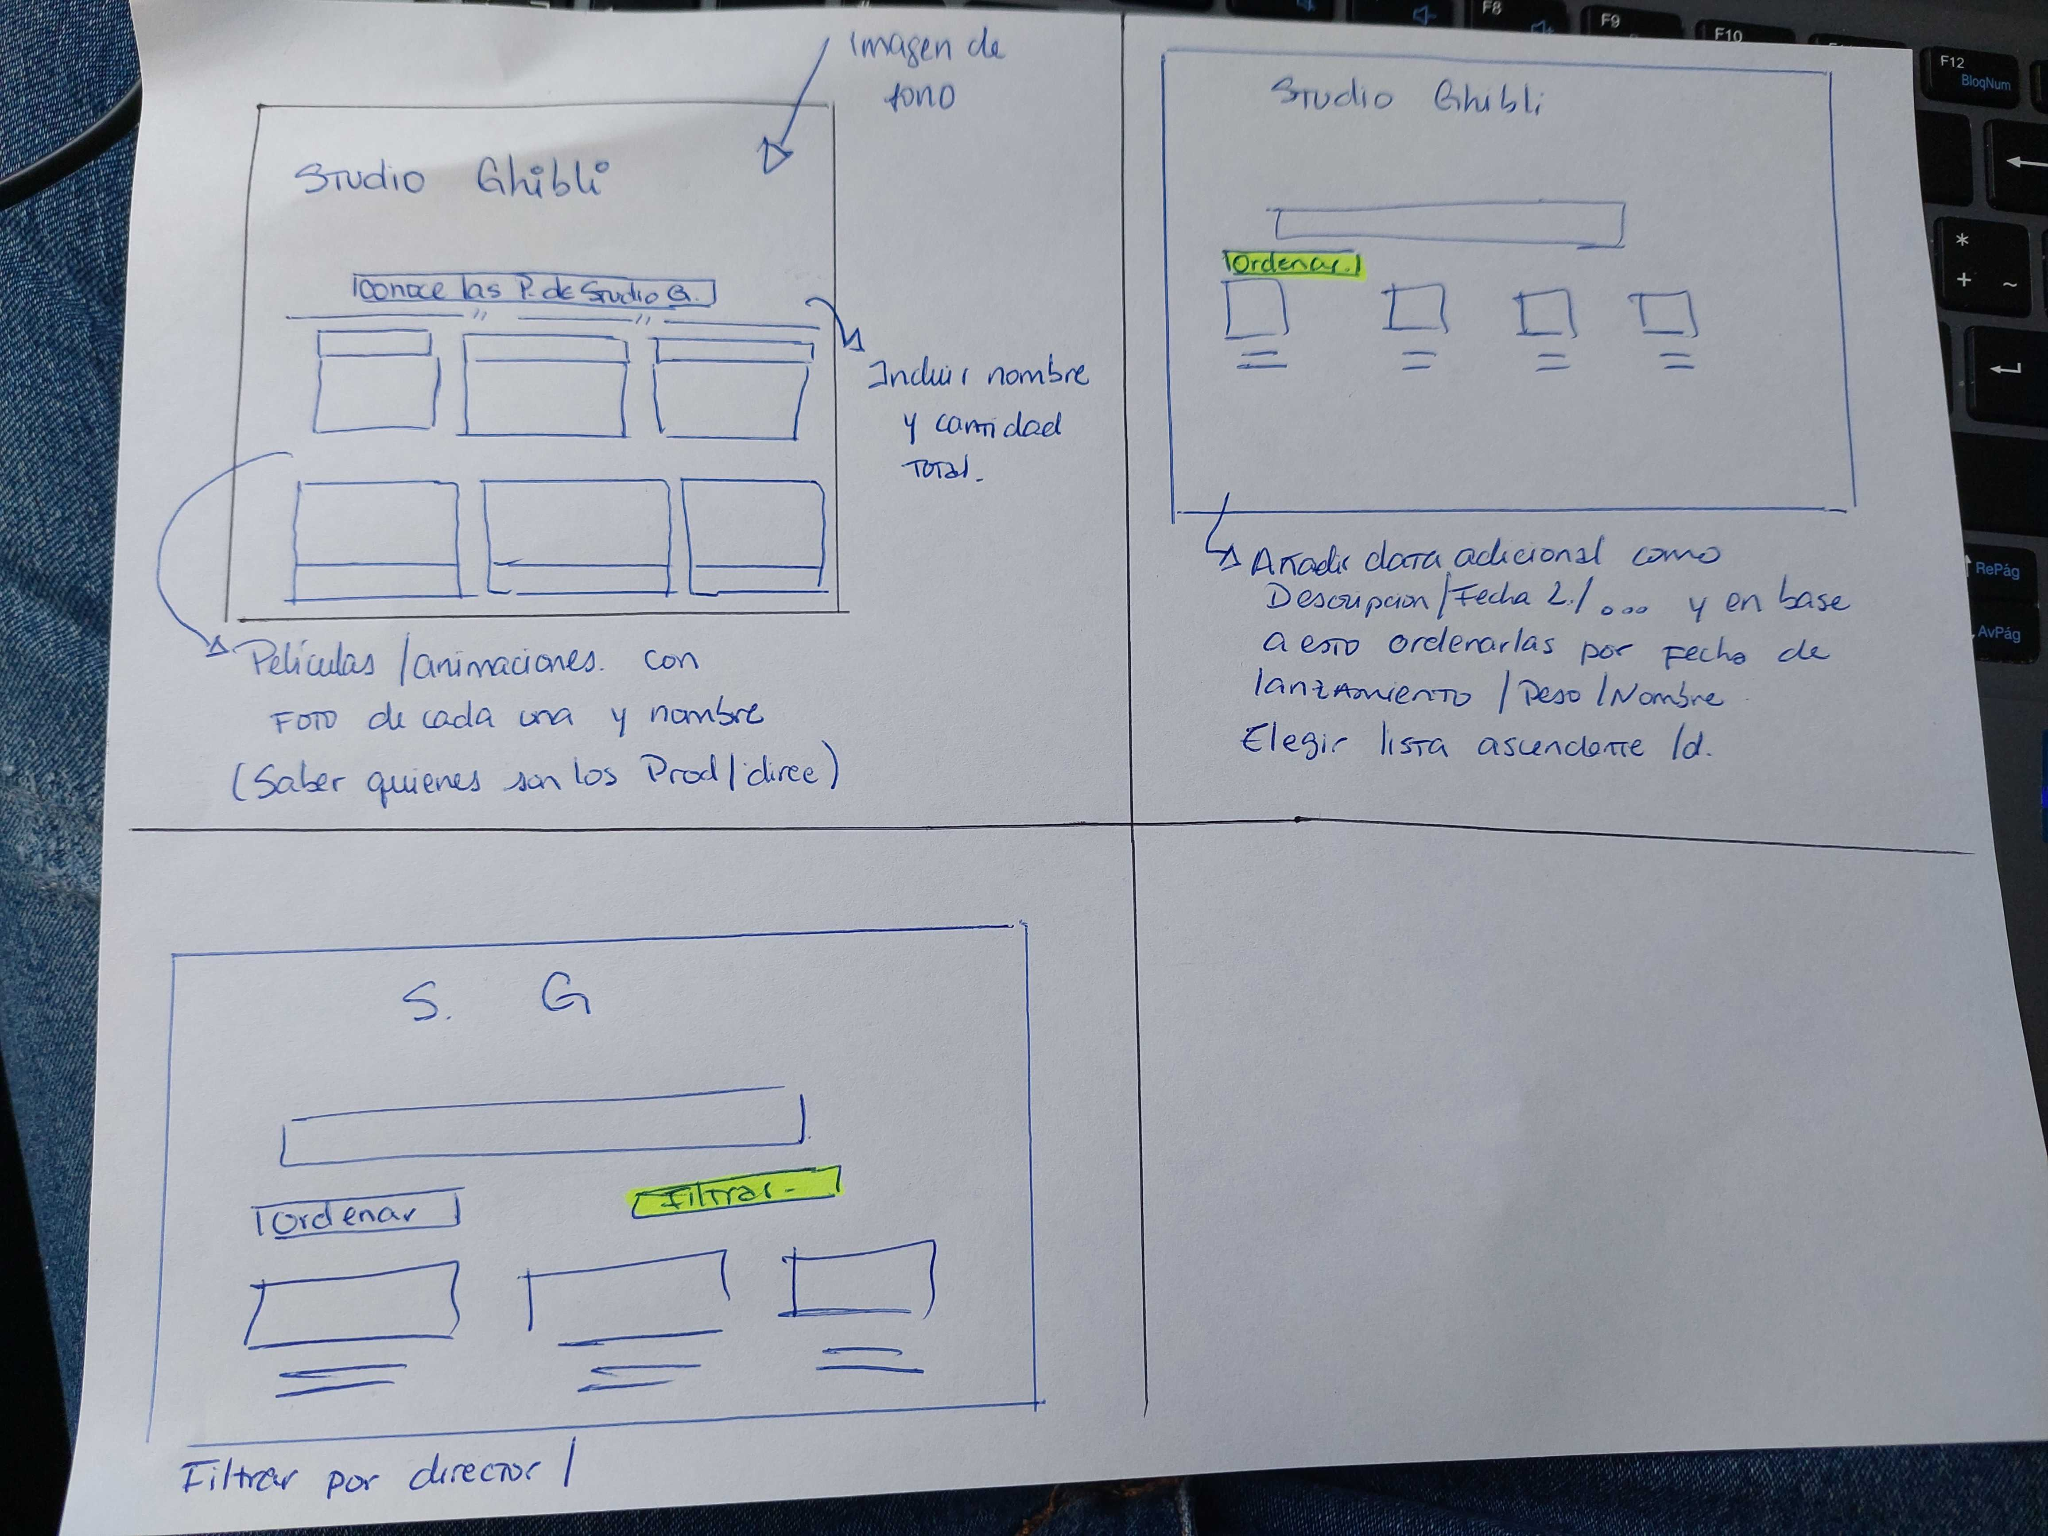 Imagen de
fono
Studio Ghibli
Conoce las P. de Studio G.
Incluir nombre
y cantidad
Total.
Películas / animaciones. con
FOTO de cada una y nombre
(Saber quienes son los Prod / direc)
Studio Ghibli
Ordenar.
Añadir data adicional como
Descripcion / Fecha L. / ... y en base
a esto ordenarlas por Fecha de
lanzamiento / Peso / Nombre
Elegir lista ascendente / d.
S. G
Ordenar
Filtrar.
Filtrar por director /
F8
F9
F10
F12
BloqNum
*
+ ~
RePág
AvPág